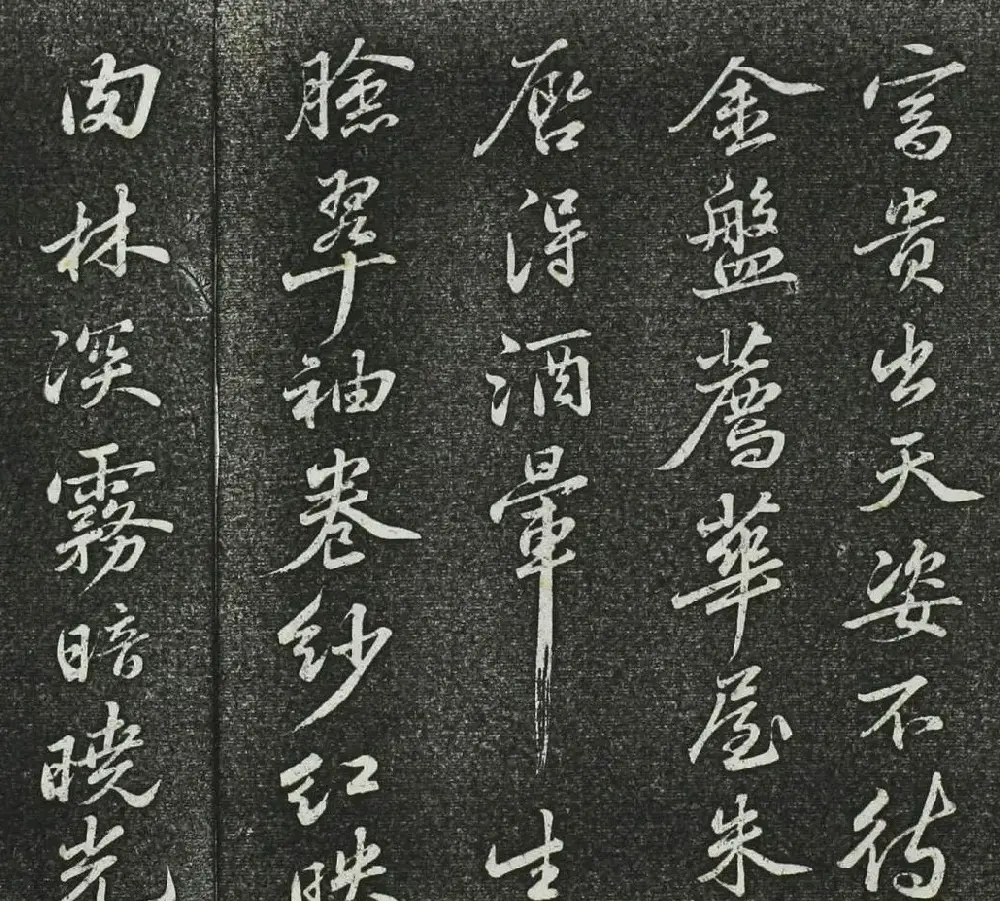 富貴出天姿不待
金盤薦華屋朱
唇得酒暈生
臉翠袖卷紗紅映
肉林深霧暗曉光